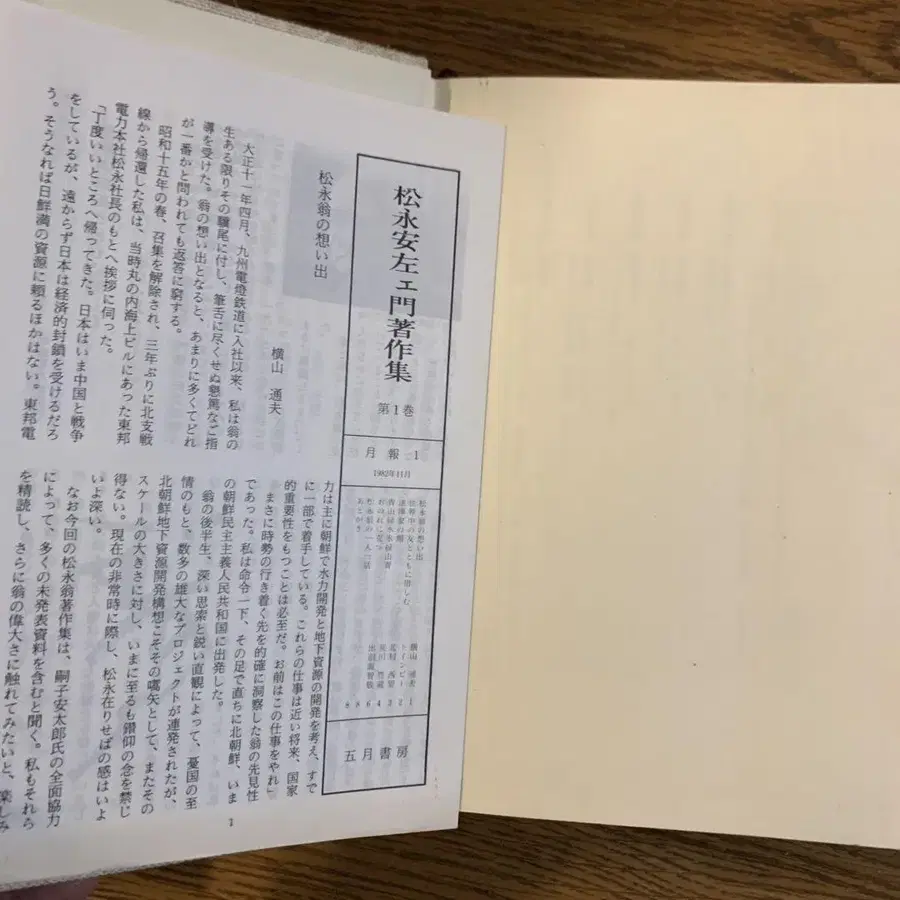 松永安左エ門著作集
第1巻
月報 1
1982年11月
松永翁の想い出
横山 通夫 1
トインビー 2
あとがき
8
五月書房
松永翁の想い出
横山 通夫
大正十一年四月、九州電燈鉄道に入社以来、私は翁の
生ある限りその驥尾に付し、筆舌に尽くせぬ懇篤なご指
導を受けた。翁の想い出となると、あまりに多くてどれ
が一番かと問われても返答に窮する。
昭和十五年の春、召集を解除され、三年ぶりに北支戦
線から帰還した私は、当時丸の内海上ビルにあった東邦
電力本社松永社長のもとへ挨拶に伺った。
「丁度いいところへ帰ってきた。日本はいま中国と戦争
をしているが、遠からず日本は経済的封鎖を受けるだろ
う。そうなれば日鮮満の資源に頼るほかはない。東邦電
力は主に朝鮮で水力開発と地下資源の開発を考え、すで
に一部で着手している。これらの仕事は近い将来、国家
的重要性をもつことは必至だ。お前はこの仕事をやれ」
まさに時勢の行き着く先を的確に洞察した翁の先見性
であった。私は命令一下、その足で直ちに北朝鮮、いま
の朝鮮民主主義人民共和国に出発した。
翁の後半生、深い思索と鋭い直観によって、憂国の至
情のもと、数多の雄大なプロジェクトが連発されたが、
北朝鮮地下資源開発構想こそその嚆矢として、またその
スケールの大きさに対し、いまに至るも鑽仰の念を禁じ
得ない。現在の非常時に際し、松永在りせばの感はいよ
いよ深い。
なお今回の松永翁著作集は、嗣子安太郎氏の全面協力
によって、多くの未発表資料を含むと聞く。私もそれら
を精読し、さらに翁の偉大さに触れてみたいと、楽しみ
1